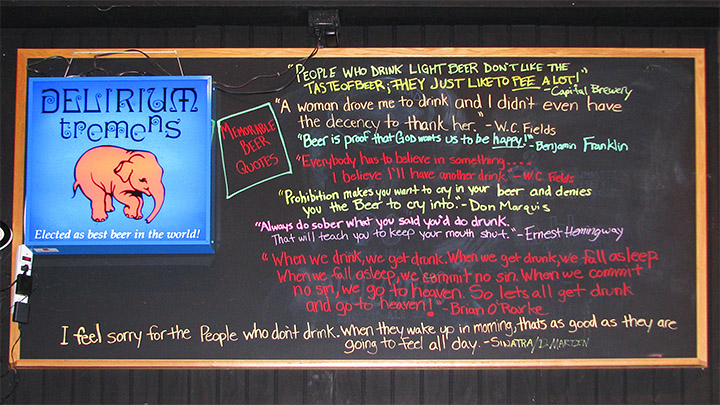 DELIRIUM
tremens
Elected as best beer in the world!
MEMORABLE
BEER
QUOTES
"PEOPLE WHO DRINK LIGHT BEER DON'T LIKE THE
TASTE OF BEER; THEY JUST LIKE TO PEE A LOT!"
-Capital Brewery
"A woman drove me to drink and I didn't even have
the decency to thank her." - W.C. Fields
"Beer is proof that God wants us to be happy." - Benjamin Franklin
"Everybody has to believe in something.....
I believe I'll have another drink." - W.C. Fields
"Prohibition makes you want to cry in your beer and denies
you the Beer to cry into." - Don Marquis
"Always do sober what you said you'd do drunk.
That will teach you to keep your mouth shut." - ERNEST Hemingway
"When we drink, we get drunk. When we get drunk, we fall asleep
When we fall asleep, we commit no sin. When we commit
no sin, we go to heaven. So lets all get drunk
and go to heaven!" - Brian O'Rourke
I feel sorry for the People who don't drink. When they wake up in morning, thats as good as they are
going to feel all day. - SINATRA/D. MARTIN